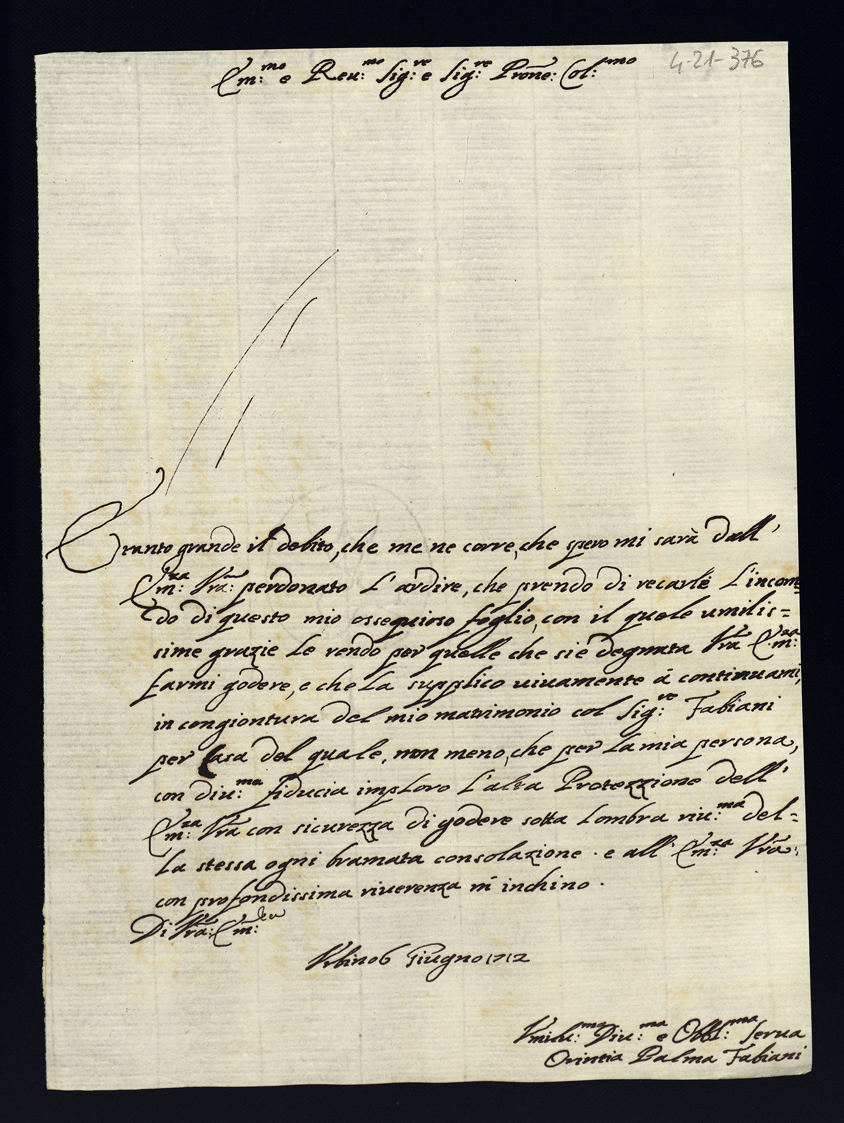 Em:mo e Reu:mo Sig:re e Sig:re Prone: Col:mo
4-21-376
E tanto grande il debito, che me ne corre, che spero mi sarà dall'
Em:za Vra: perdonato l'ardire, che prendo di recarle l'incom
do di questo mio ossequioso foglio, con il quale umilis=
sime grazie le rendo per quelle che si è degnata Vra Em:za
farmi godere, e che la supplico uiuamente à continuami,
in congiontura del mio matrimonio col Sig:re Fabiani
per Casa del quale, non meno, che per la mia persona,
con diu:ma fiducia imploro l'alta Protezzione dell'
Em:za Vra con sicurezza di godere sotta lombra riu:ma del=
la stessa ogni bramata consolazione. e all' Em:za Vra:
con profondissima riuerenza m'inchino.
Di Vra: Em:za
Vrbino 6 Giugno 1712
Vmilis:ma Diu:ma e Obbl:ma Serua
Orintia Palma Fabiani